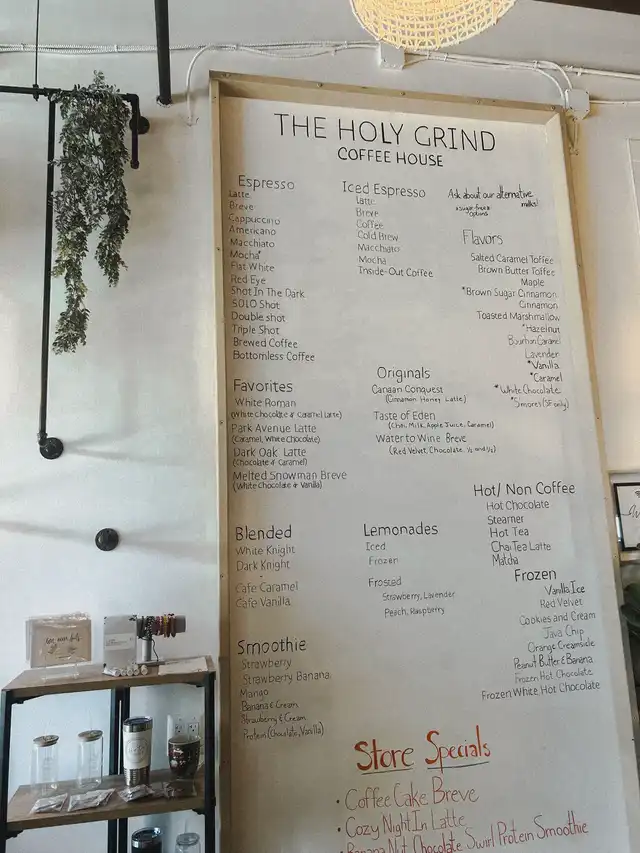 THE HOLY GRIND
COFFEE HOUSE
Espresso
Latte
Breve
Cappuccino
Americano
Macchiato
Mocha*
Flat White
Red Eye
Shot In The Dark
SOLO Shot
Double shot
Triple Shot
Brewed Coffee
Bottomless Coffee
Iced Espresso
Latte
Breve
Coffee
Cold Brew
Macchiato
Mocha
Inside-Out Coffee
Ask about our alternative
milks!
*sugar-free*
options
Flavors
Salted Caramel Toffee
Brown Butter Toffee
Maple
*Brown Sugar Cinnamon
Cinnamon
Toasted Marshmallow
*Hazelnut
Bourbon Caramel
Lavender
*Vanilla
*Caramel
*White Chocolate
*S'mores (SF only)
Favorites
White Roman
(White Chocolate & Caramel Latte)
Park Avenue Latte
(Caramel, White Chocolate)
Dark Oak Latte
(Chocolate & Caramel)
Melted Snowman Breve
(White Chocolate & Vanilla)
Originals
Canaan Conquest
(Cinnamon Honey Latte)
Taste of Eden
(Chai, Milk, Apple Juice, Caramel)
Water to Wine Breve
(Red Velvet, Chocolate, ½ and ½)
Hot/ Non Coffee
Hot Chocolate
Steamer
Hot Tea
Chai Tea Latte
Matcha
Blended
White Knight
Dark Knight
Cafe Caramel
Cafe Vanilla
Lemonades
Iced
Frozen
Frosted
Strawberry, Lavender
Peach, Raspberry
Frozen
Vanilla Ice
Red Velvet
Cookies and Cream
Java Chip
Orange Creamside
Peanut Butter & Banana
Frozen Hot Chocolate
Frozen White Hot Chocolate
Smoothie
Strawberry
Strawberry Banana
Mango
Banana & Cream
Strawberry & Cream
Protein (Chocolate, Vanilla)
Store Specials
• Coffee Cake Breve
• Cozy Night In Latte
• Banana Nut Chocolate Swirl Protein Smoothie